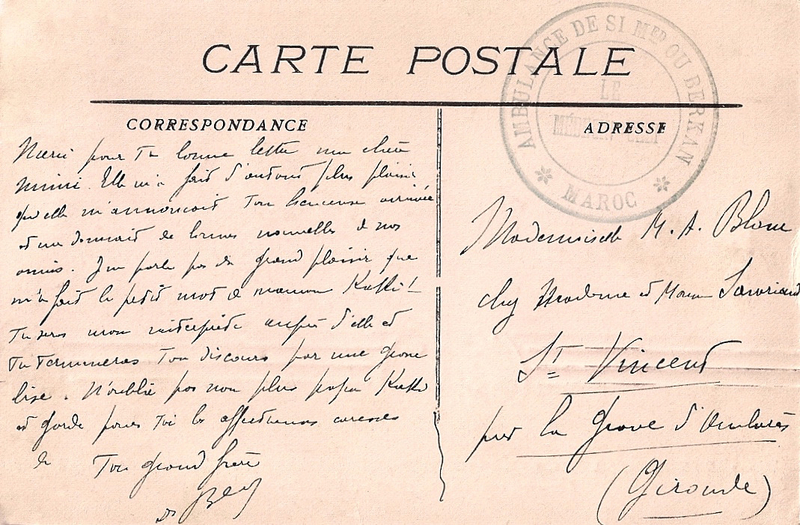 CARTE POSTALE
AMBULANCE DE SI MED OU BERKAN
LE
MÉDECIN CHEF
MAROC
CORRESPONDANCE
ADRESSE
Merci pour ta bonne lettre ma chère
mimi. Elle m'a fait d'autant plus plaisir
qu'elle m'annonçait ton heureuse arrivée
et me donnait de bonnes nouvelles de nos
amis. J'en parle pas du grand plaisir que
m'a fait le petit mot de maman Kakki!
Tu seras mon interprète auprès d'elle et
tu termineras ton discours par une grosse
bise. N'oublie pas non plus papa Kakki
et garde pour toi les affectueuses caresses
de Ton grand frère
Mademoiselle M. A. Blanc
chez Madame et Monsieur
St Vincent
par la Grave d'Ambarès
(Gironde)